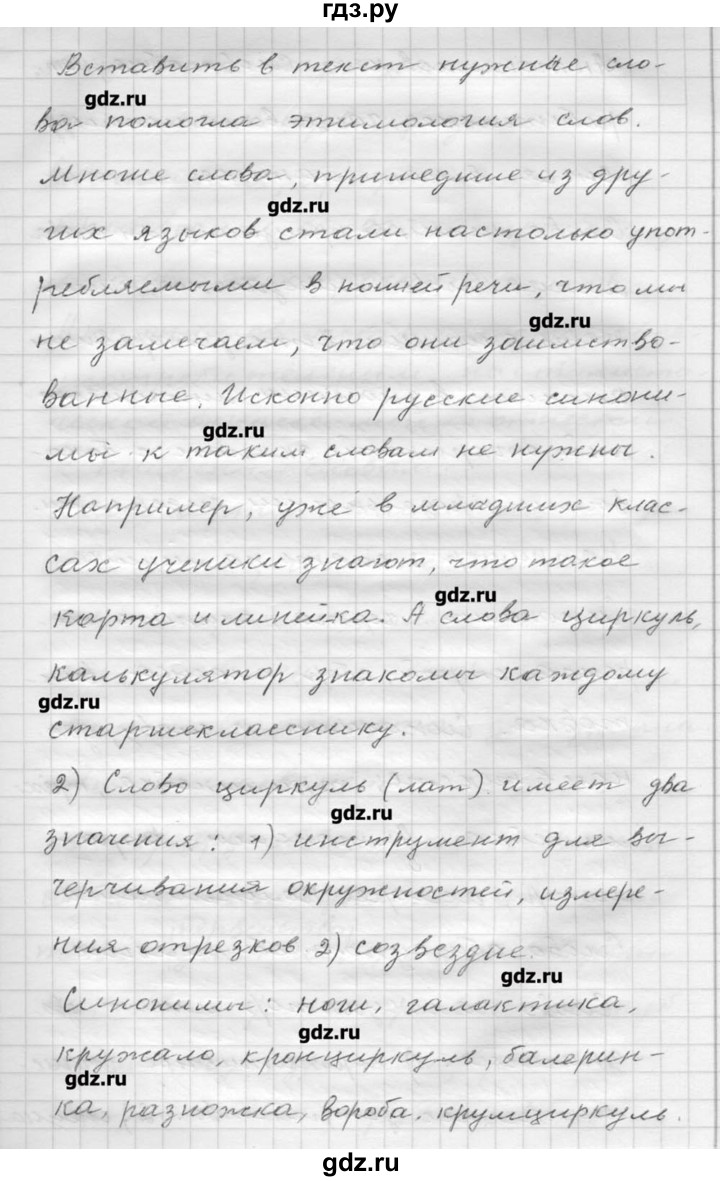 гдз.ру
Вставить в текст нужные сло-
gdz.ru
ва помогла этимология слов.
Многие слова, пришедшие из дру-
gdz.ru
гих языков стали настолько упот-
ребляемыми в нашей речи, что мы
gdz.ru
не замечаем, что они заимство-
ванные. Исконно русские синони-
gdz.ru
мы к таким словам не нужны.
Например, уже в младших клас-
сах ученики знают, что такое
gdz.ru
карта и линейка. А слова циркуль,
калькулятор знакомы каждому
gdz.ru
старшекласснику.
2) Слово циркуль (лат) имеет два
gdz.ru
значения: 1) инструмент для вы-
черчивания окружностей, измере-
ния отрезков 2) созвездие.
gdz.ru
Синонимы: ноги, галактика,
gdz.ru
кружало, кронциркуль, балерин-
gdz.ru
ка, разножка, вороба, крумциркуль.
gdz.ru